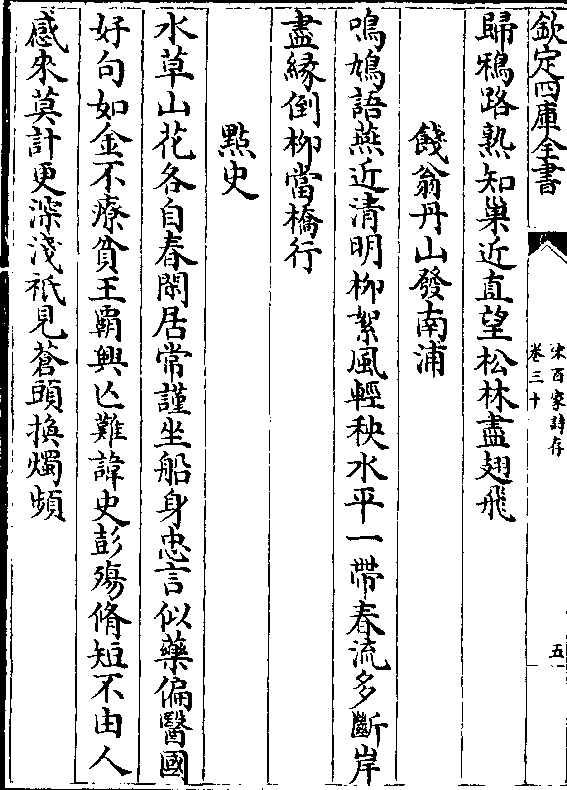 欽定四庫全書
宋百家詩存
卷三十
五
歸鴉路熟知巢近直望松林盡翅飛
餞翁丹山發南浦
鳴鳩語燕近清明柳絮風輕秧水平一帶春流多斷岸
盡緣倒柳當橋行
點史
水草山花各自春閑居常謹坐船身忠言似藥偏醫國
好句如金不療貧王霸興亡難諱史彭殤脩短不由人
感來莫計更深淺秪見蒼頭換燭頻